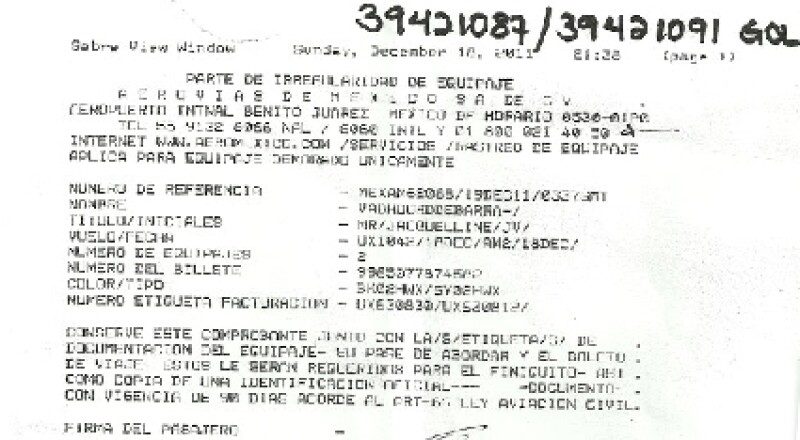 39421087/39421091 GOL
Sabre View Window Sunday, December 18, 2011 (page 1)
PARTE DE IRREGULARIDAD DE EQUIPAJE
AEROVIAS DE MEXICO SA DE CV
AEROPUERTO INTNAL BENITO JUAREZ MEXICO DF HORARIO
TEL 55 9132 6066 NAL / 6060 INTL Y 01 800 021 40 50
INTERNET WWW.AEROMEXICO.COM /SERVICIOS /RASTREO DE EQUIPAJE
APLICA PARA EQUIPAJE DEMORADO UNICAMENTE
NUMERO DE REFERENCIA -
NOMBRE -
TITULO/INICIALES - MR/JACQUELLINE/JV/
VUELO/FECHA - UX1042/18DEC/AM2/18DEC/
NUMERO DE EQUIPAJES - 2
NUMERO DEL BILLETE -
COLOR/TIPO - BK02HWX/GY02HWX
NUMERO ETIQUETA FACTURACION -
CONSERVE ESTE COMPROBANTE JUNTO CON LA/S/ETIQUETA/S/ DE
DOCUMENTACION DEL EQUIPAJE- SU PASE DE ABORDAR Y EL BOLETO
DE VIAJE- ESTOS LE SERAN REQUERIDOS PARA EL FINIQUITO- ASI
COMO COPIA DE UNA IDENTIFICACION OFICIAL--- -DOCUMENTO-
CON VIGENCIA DE 90 DIAS ACORDE AL ART-65 LEY AVIACION CIVIL.
FIRMA DEL PASAJERO -